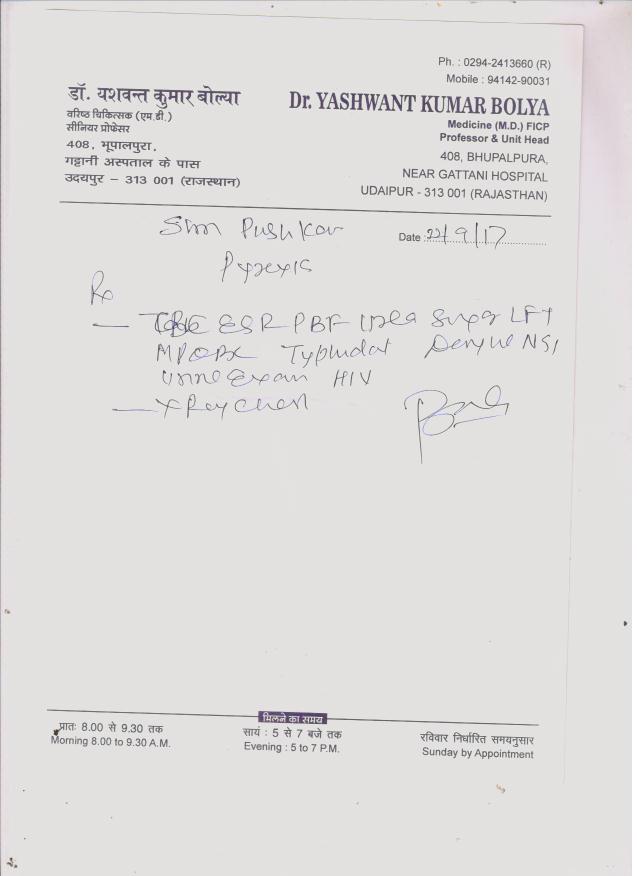 Ph. : 0294-2413660 (R)
Mobile : 94142-90031
डॉ. यशवन्त कुमार बोल्या
वरिष्ठ चिकित्सक (एम.डी.)
सीनियर प्रोफेसर
408, भूपालपुरा,
गट्टानी अस्पताल के पास
उदयपुर – 313 001 (राजस्थान)
Dr. YASHWANT KUMAR BOLYA
Medicine (M.D.) FICP
Professor & Unit Head
408, BHUPALPURA,
NEAR GATTANI HOSPITAL
UDAIPUR - 313 001 (RAJASTHAN)
Pushkar
Date : 22/9/17
Pyrexia
Rx
— ESR PBF Urea Sugar LFT
Typhidot Dengue NS1
Urine Exam HIV
— X Ray Chest
मिलने का समय
प्रातः 8.00 से 9.30 तक
Morning 8.00 to 9.30 A.M.
सायं : 5 से 7 बजे तक
Evening : 5 to 7 P.M.
रविवार निर्धारित समयनुसार
Sunday by Appointment